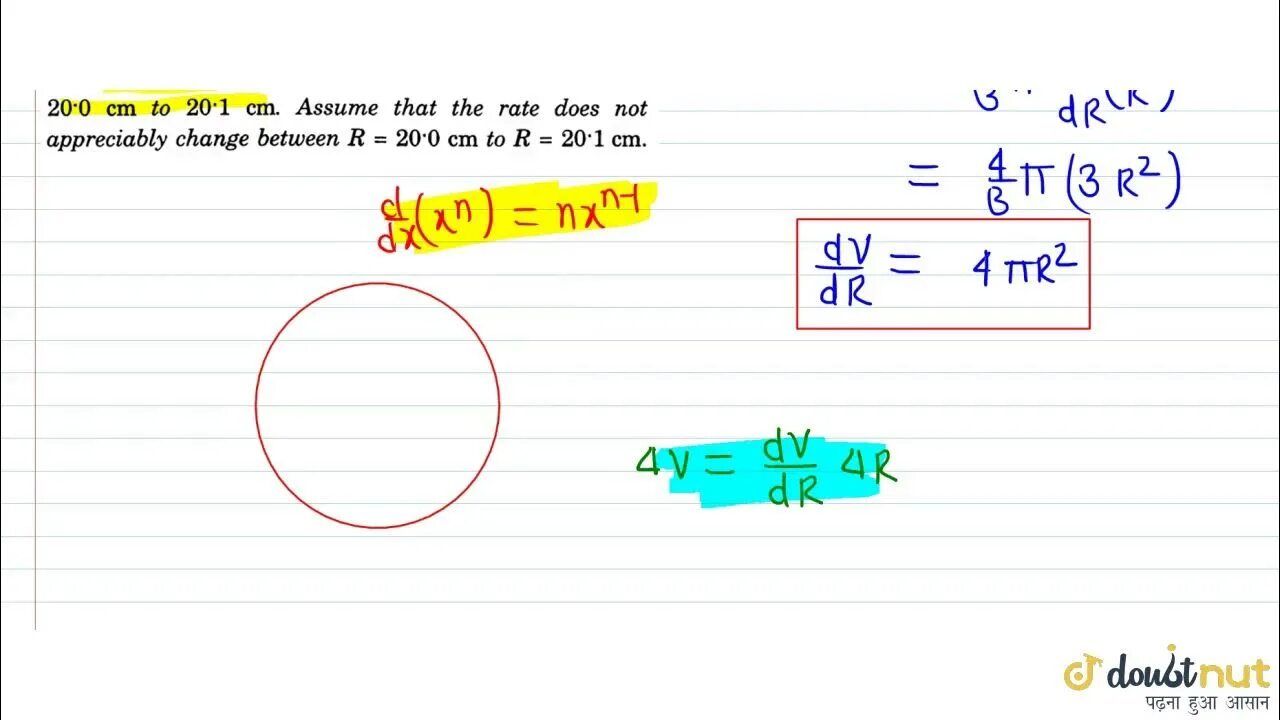 20·0 cm to 20·1 cm. Assume that the rate does not
appreciably change between R = 20·0 cm to R = 20·1 cm.
d/dx(xⁿ) = nxⁿ⁻¹
dR
= 4/3 π(3R²)
dV/dR = 4πR²
4V = dV/dR 4R
doubtnut
पढ़ना हुआ आसान